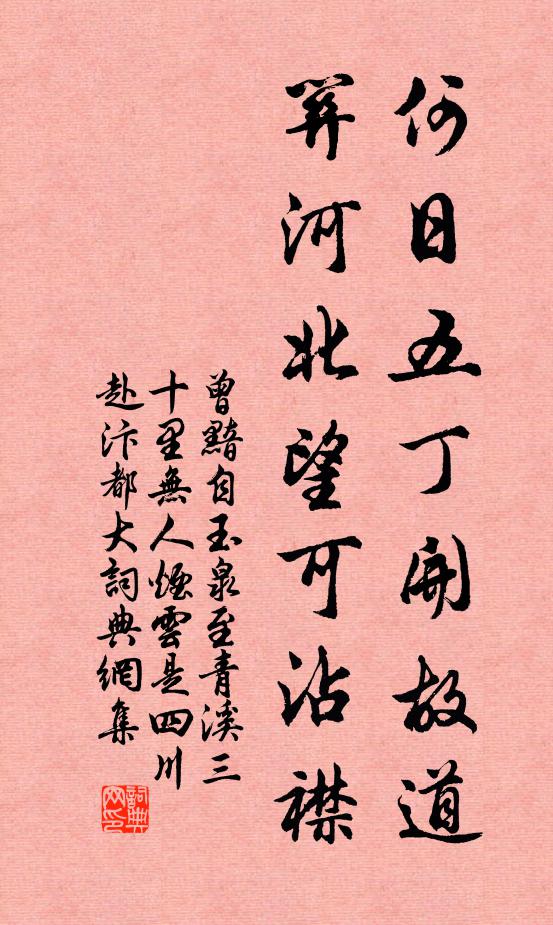 何日五丁開故道
關河北望可沾襟
曾黯自玉泉至青溪三
十里無人煙雲是四川
赴汴都大詞典網集
詞典
网印